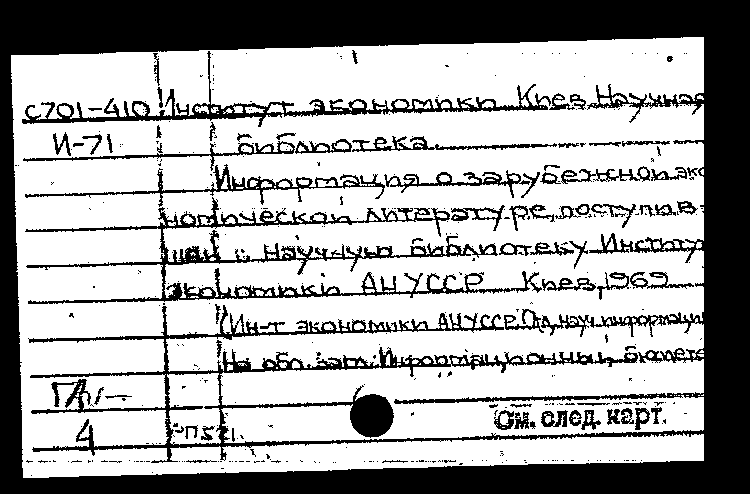 С701-410 Институт экономики Киев Научная
И-71 библиотека.
Информация о зарубежной эко
номической литературе, поступив-
шей в Научную библиотеку Институ
экономики АН УССР Киев, 1969
(Ин-т экономики АН УССР. Отд. науч. информации
На обл. загл.: Информационный бюллете
4
См. след. карт.